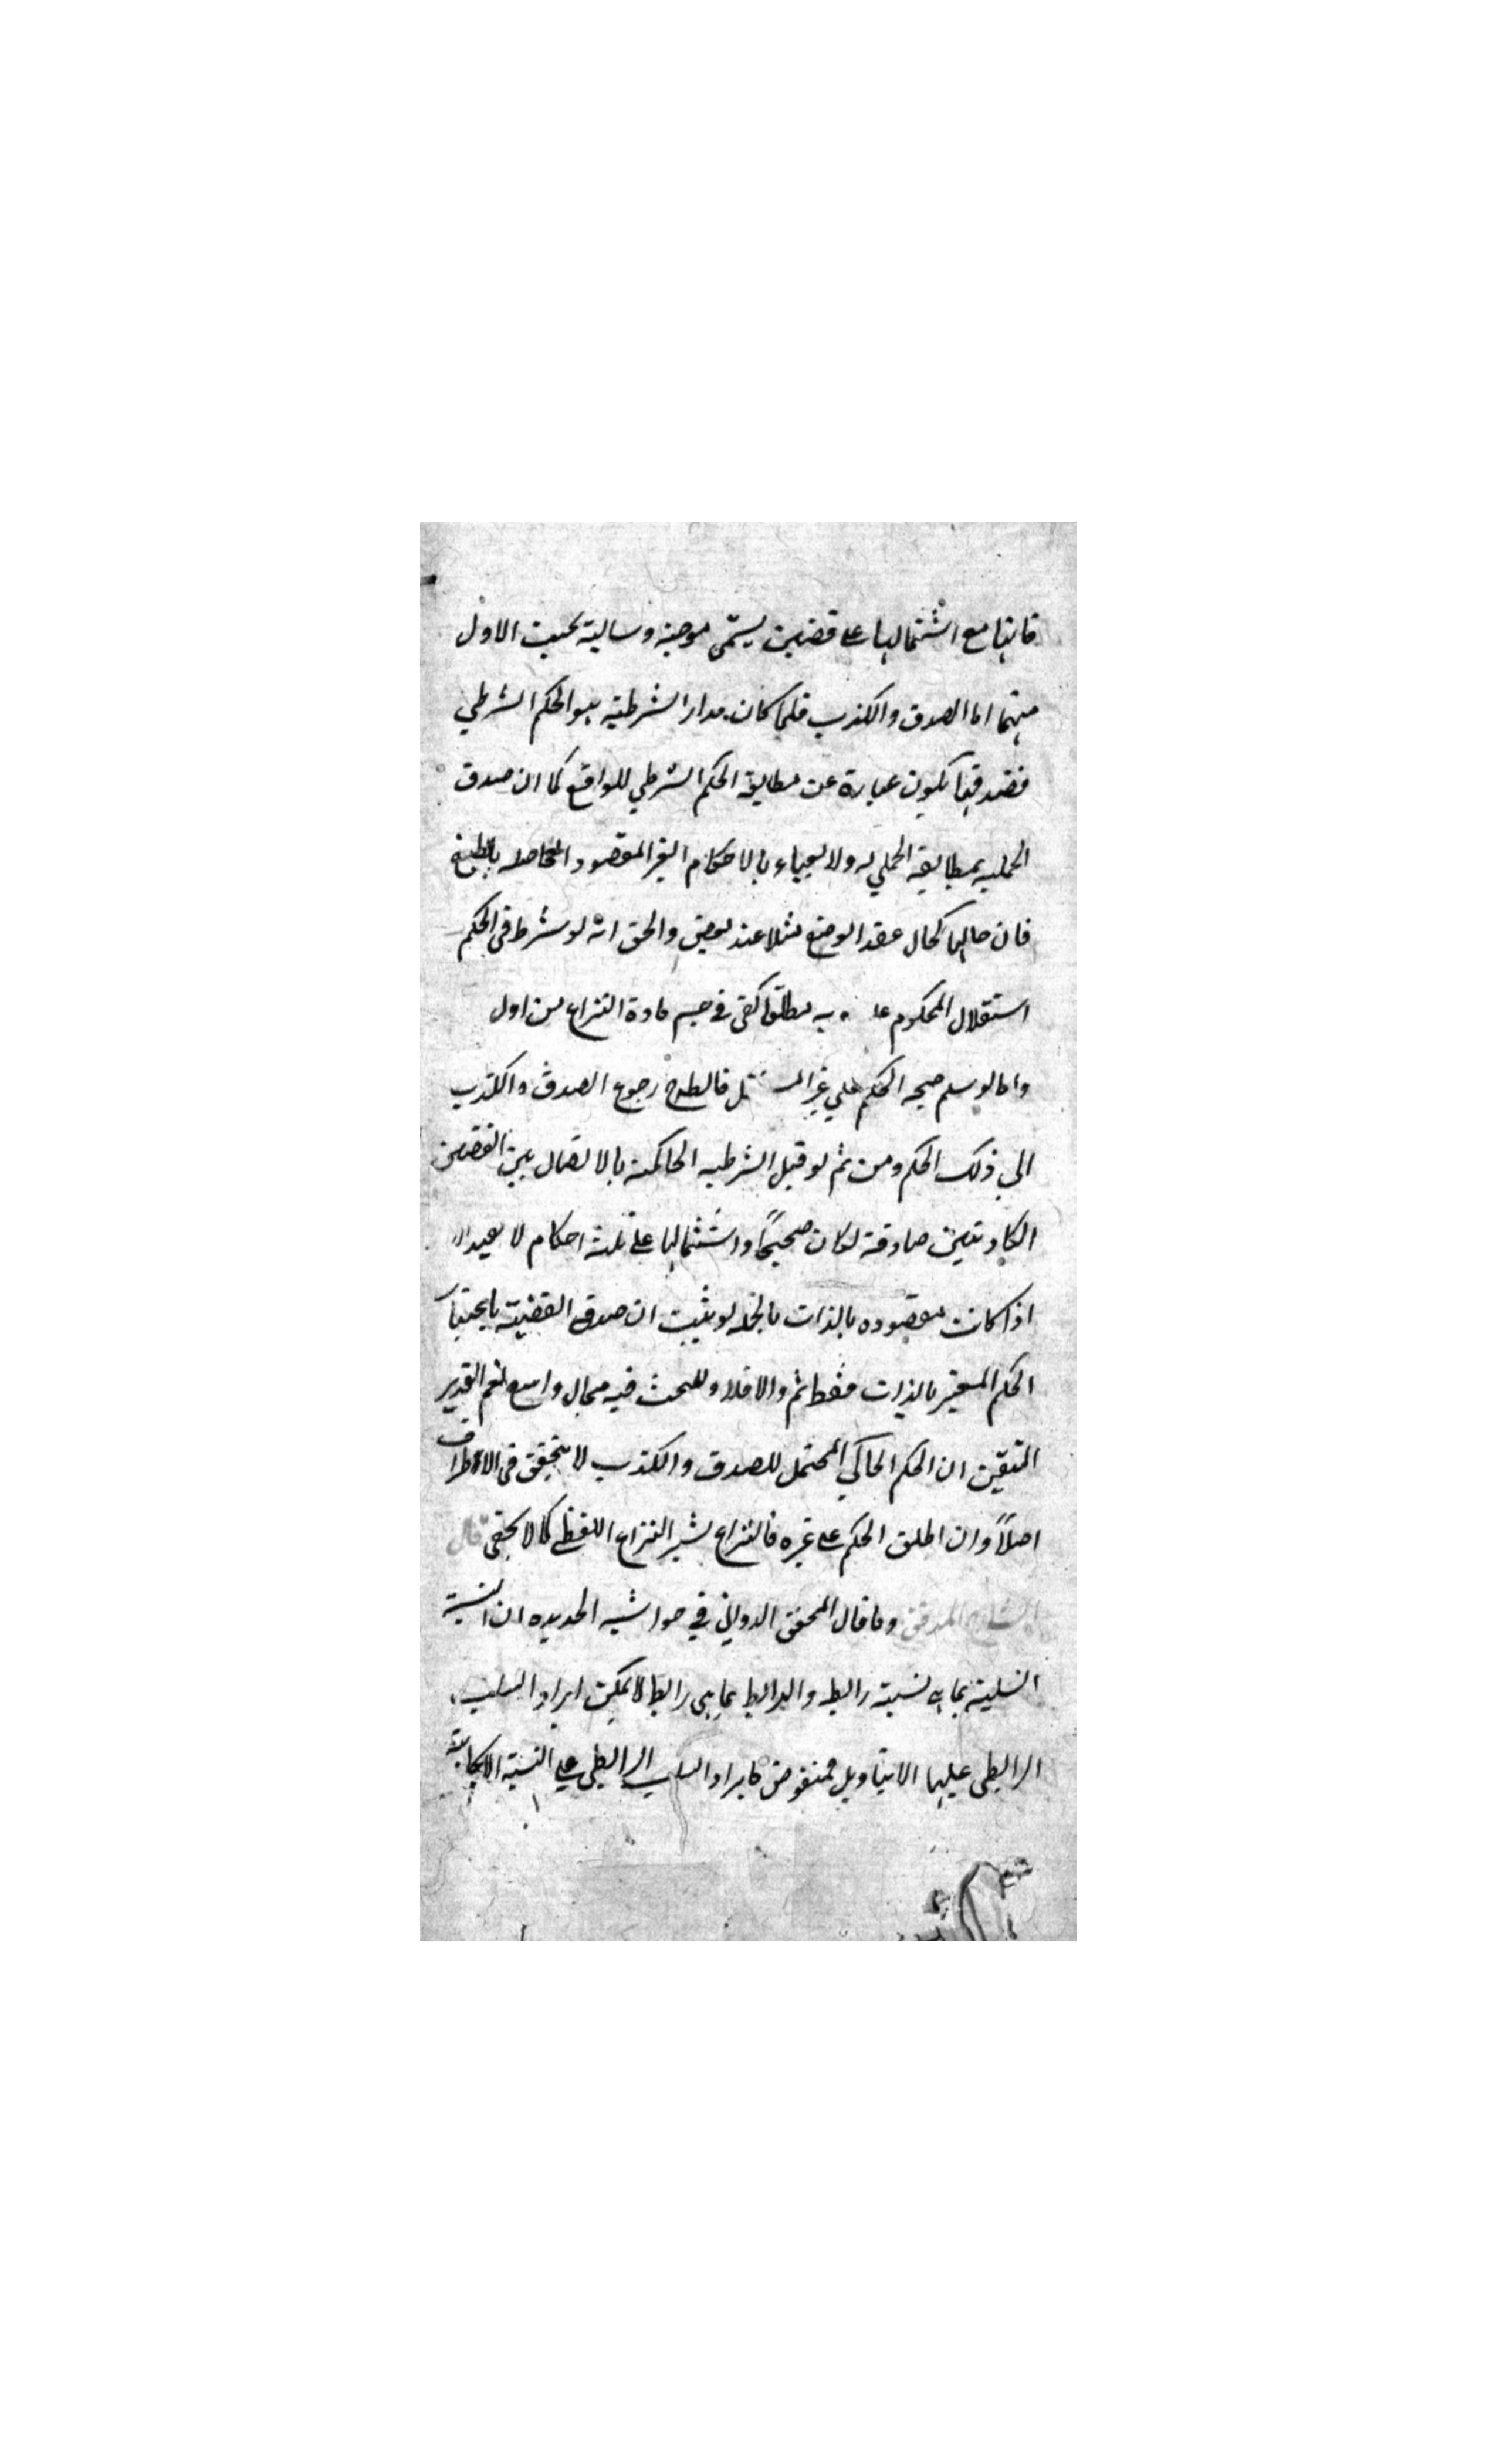 فانها مع اشتمالها على قضيتين يسمى موجبة وسالبة بحسب الاول
منهما اما الصدق والكذب فلما كان مدار الشرطية هو الحكم الشرطي
فصدقها يكون عبارة عن مطابقة الحكم الشرطي للواقع كما ان صدق
الحملية بمطابقة الحملي له ولا يعباء بالاحكام الغير المقصود الحاصله
فان حالها كحال عقد الوضع مثلا عند بعض والحق انه لو شرط في الحكم
استقلال المحكوم عليه به مطلقا كفى في حسم مادة النزاع من اول
واما لو سلم صحة الحكم على غير فالطوع رجوع الصدق والكذب
الى ذلك الحكم ومن ثم لو قيل الشرطيه الحاكمة بالاتصال بين القضيتين
الكاذبتين صادقة لكان صحيحًا واشتمالها على ثلثة احكام لا يعيد الا
اذا كانت مقصوده بالذات بالجمله لو يثبت ان صدق القضية باعتبار
الحكم المعتبر بالذات فقط ثم والا فلا وللبحث فيه مجال واسع نعم القدر
المتيقن ان الحكم الحاكي المحتمل للصدق والكذب لا يتحقق في الاطراف
اصلاً وان اطلق الحكم على غيره فالنزاع يشبر النزاع اللفظي كما لا يخفى قال
الشارح المدقق وما قال المحقق الدواني في حواشيه الجديده ان النسبة
السلبية بما هي نسبة رابطه والرابط بما هي رابط لا يمكن ايراد السلب
الرابطي عليها الا بتاويل فمنقوض كايراد السلب الرابطي على النسبة الايجابية